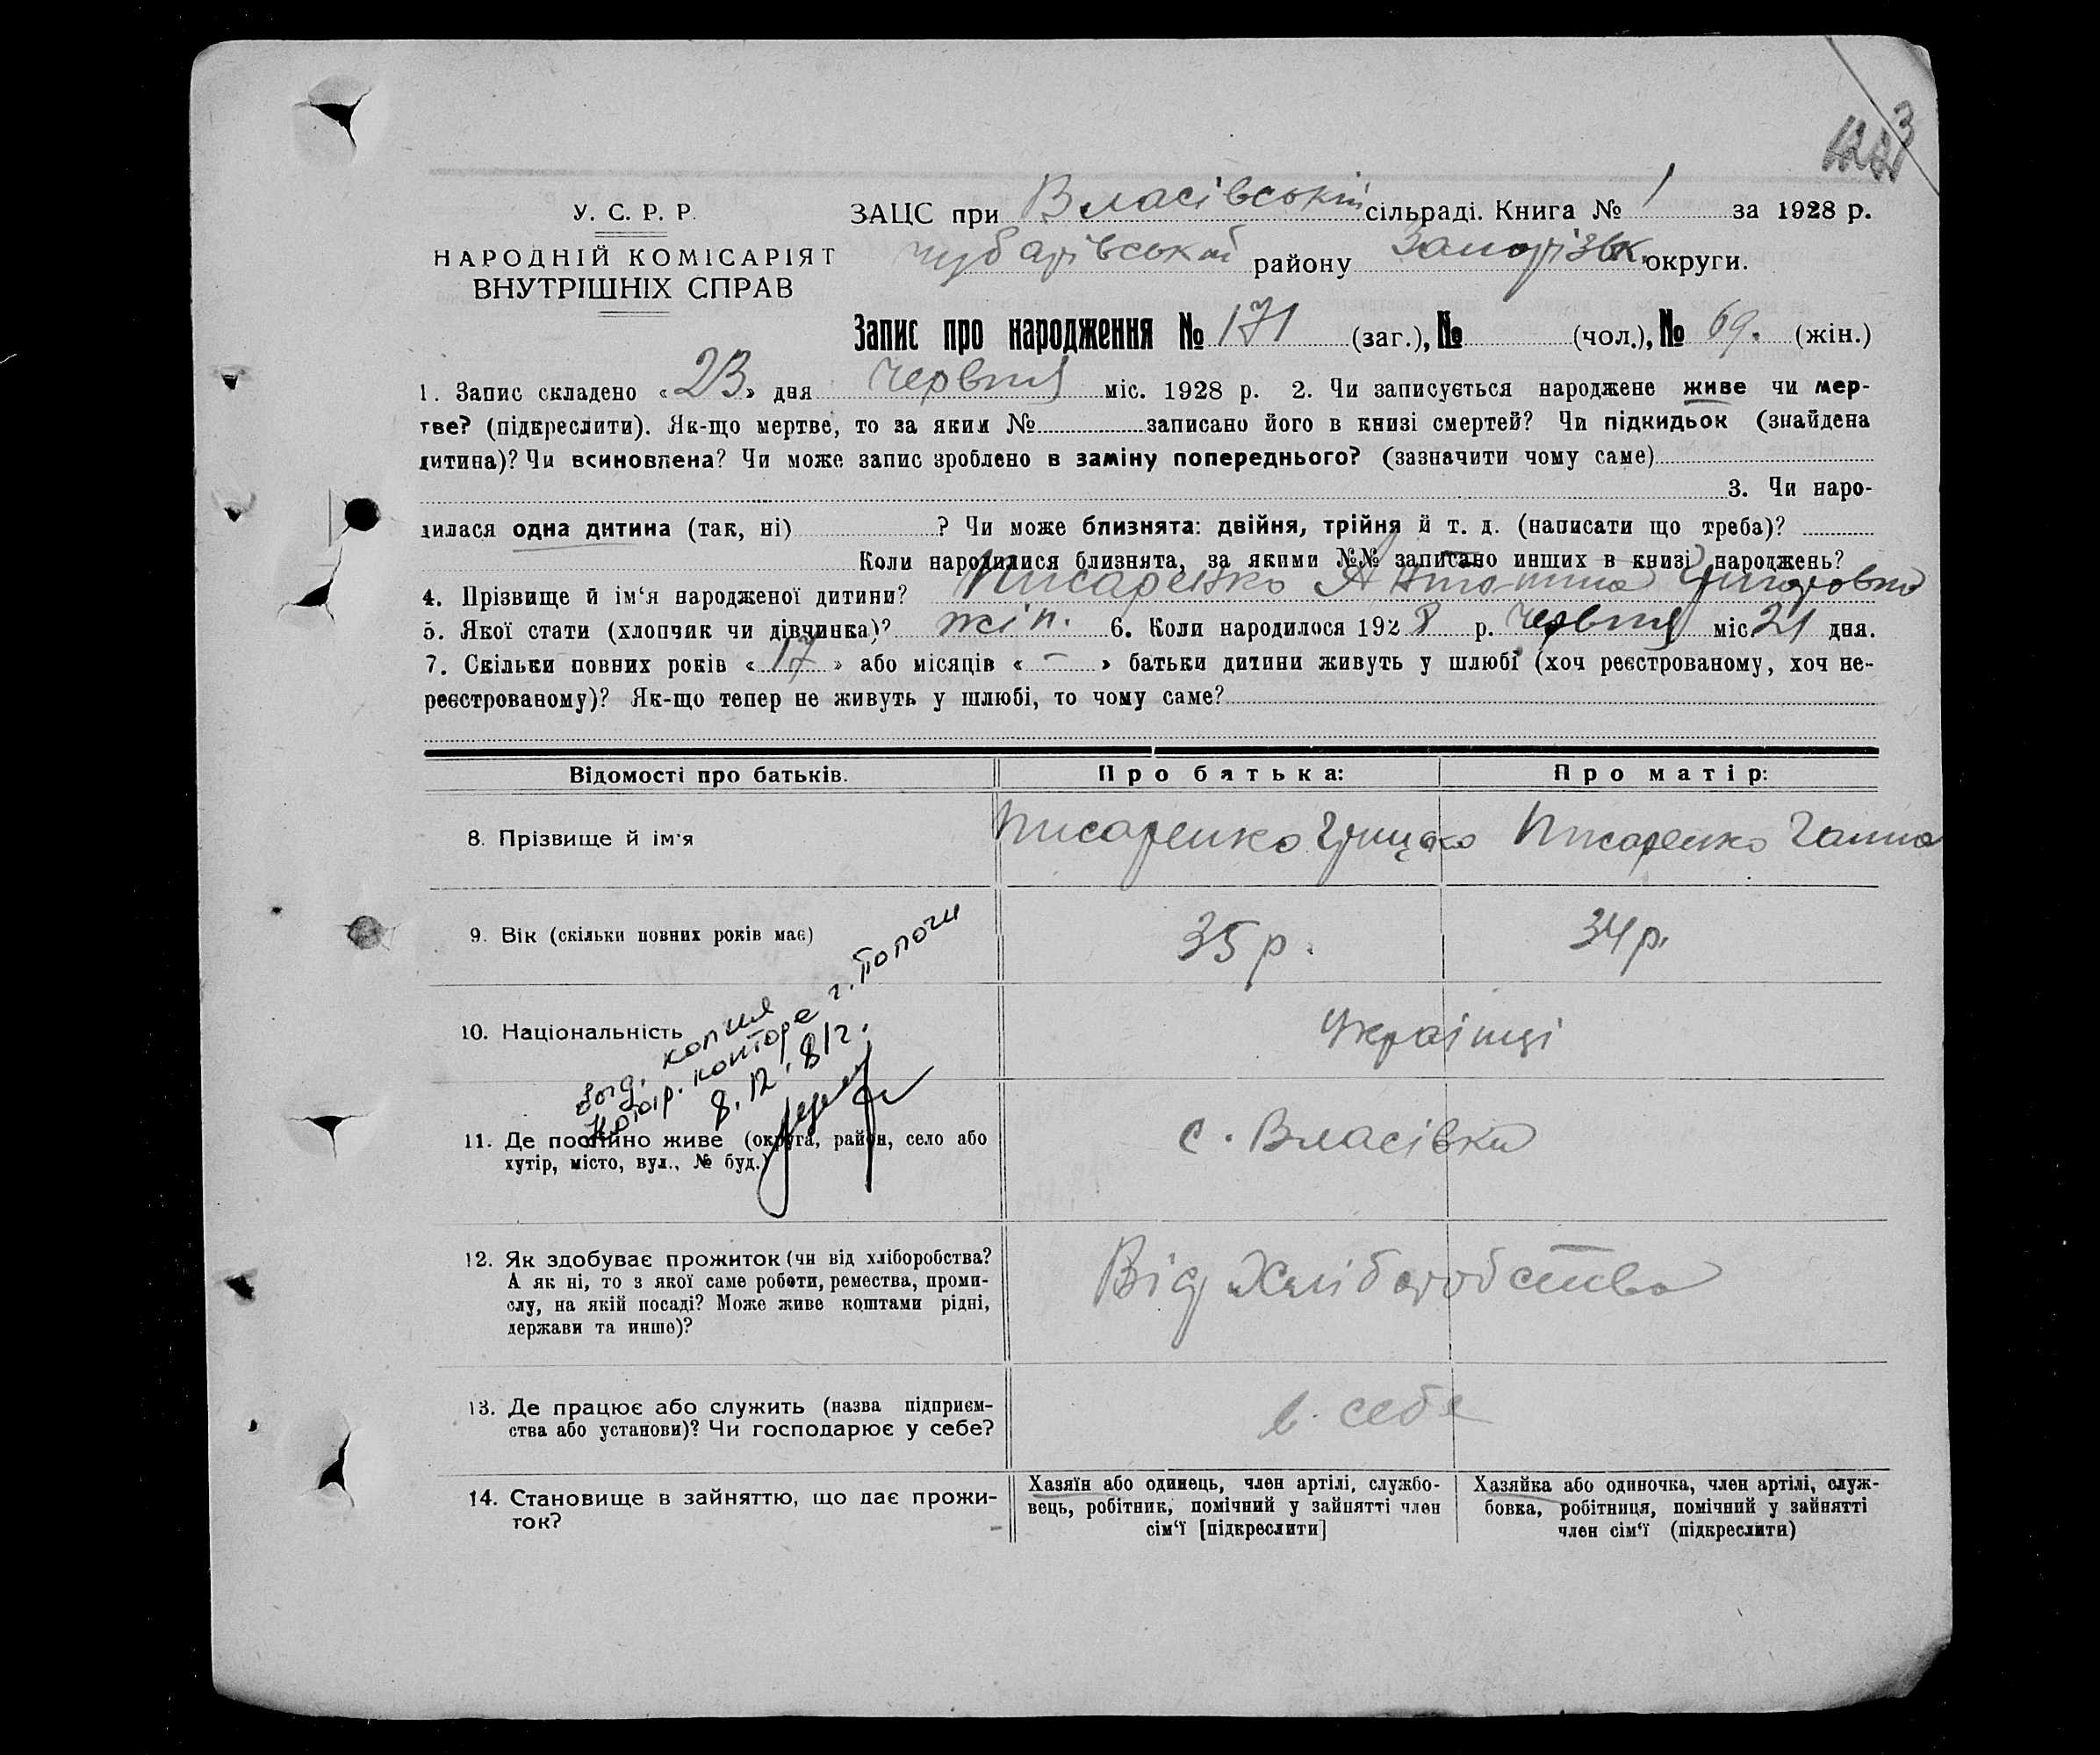 У. С. Р. Р.
НАРОДНІЙ КОМІСАРІЯТ
ВНУТРІШНІХ СПРАВ
ЗАЦС при Власівській сільраді. Книга № 1 за 1928 р.
Чубарівський району Запорізьк. округи.
Запис про народження № 171 (заг.), № (чол.), № 69. (жін.)
1. Запис складено «23» дня червня міс. 1928 р. 2. Чи записується народжене живе чи мер-
тве? (підкреслити). Як-що мертве, то за яким № записано його в книзі смертей? Чи підкидьок (знайдена
дитина)? Чи всиновлена? Чи може запис зроблено в заміну попереднього? (зазначити чому саме)
3. Чи наро-
дилася одна дитина (так, ні) ? Чи може близнята: двійня, трійня й т. д. (написати що треба)?
Коли народилися близнята, за якими №№ записано инших в книзі народжень?
4. Прізвище й ім‘я народженої дитини? Писаренко Антонина Григоровна
5. Якої стати (хлопчик чи дівчинка)? жін. 6. Коли народилося 1928 р. червня міс 21 дня.
7. Скільки повних років «17» або місяців « – » батьки дитини живуть у шлюбі (хоч реєстрованому, хоч не-
реєстрованому)? Як-що тепер не живуть у шлюбі, то чому саме?
Відомості про батьків. Про батька: Про матір:
8. Прізвище й ім'я Писаренко Грицько Писаренко Ганна
9. Вік (скільки повних років має) 35 р. 34 р.
10. Національність Українці
копия
г. Пологи
8.12.81г.
11. Де постійно живе (округа, район, село або
хутір, місто, вул., № буд.) с. Власівка
12. Як здобуває прожиток (чи від хліборобства?
А як ні, то з якої саме роботи, ремества, проми-
слу, на якій посаді? Може живе коштами рідні,
держави та инше)? Від Хліборобства
13. Де працює або служить (назва підприєм-
ства або установи)? Чи господарює у себе? в себе
14. Становище в зайняттю, що дає прожи-
ток?
Хазяїн або одинець, член артілі, службо-
вець, робітник, помічний у зайнятті член
сім‘ї [підкреслити]
Хазяйка або одиночка, член артілі, служ-
бовка, робітниця, помічний у зайнятті
член сім‘ї (підкреслити)